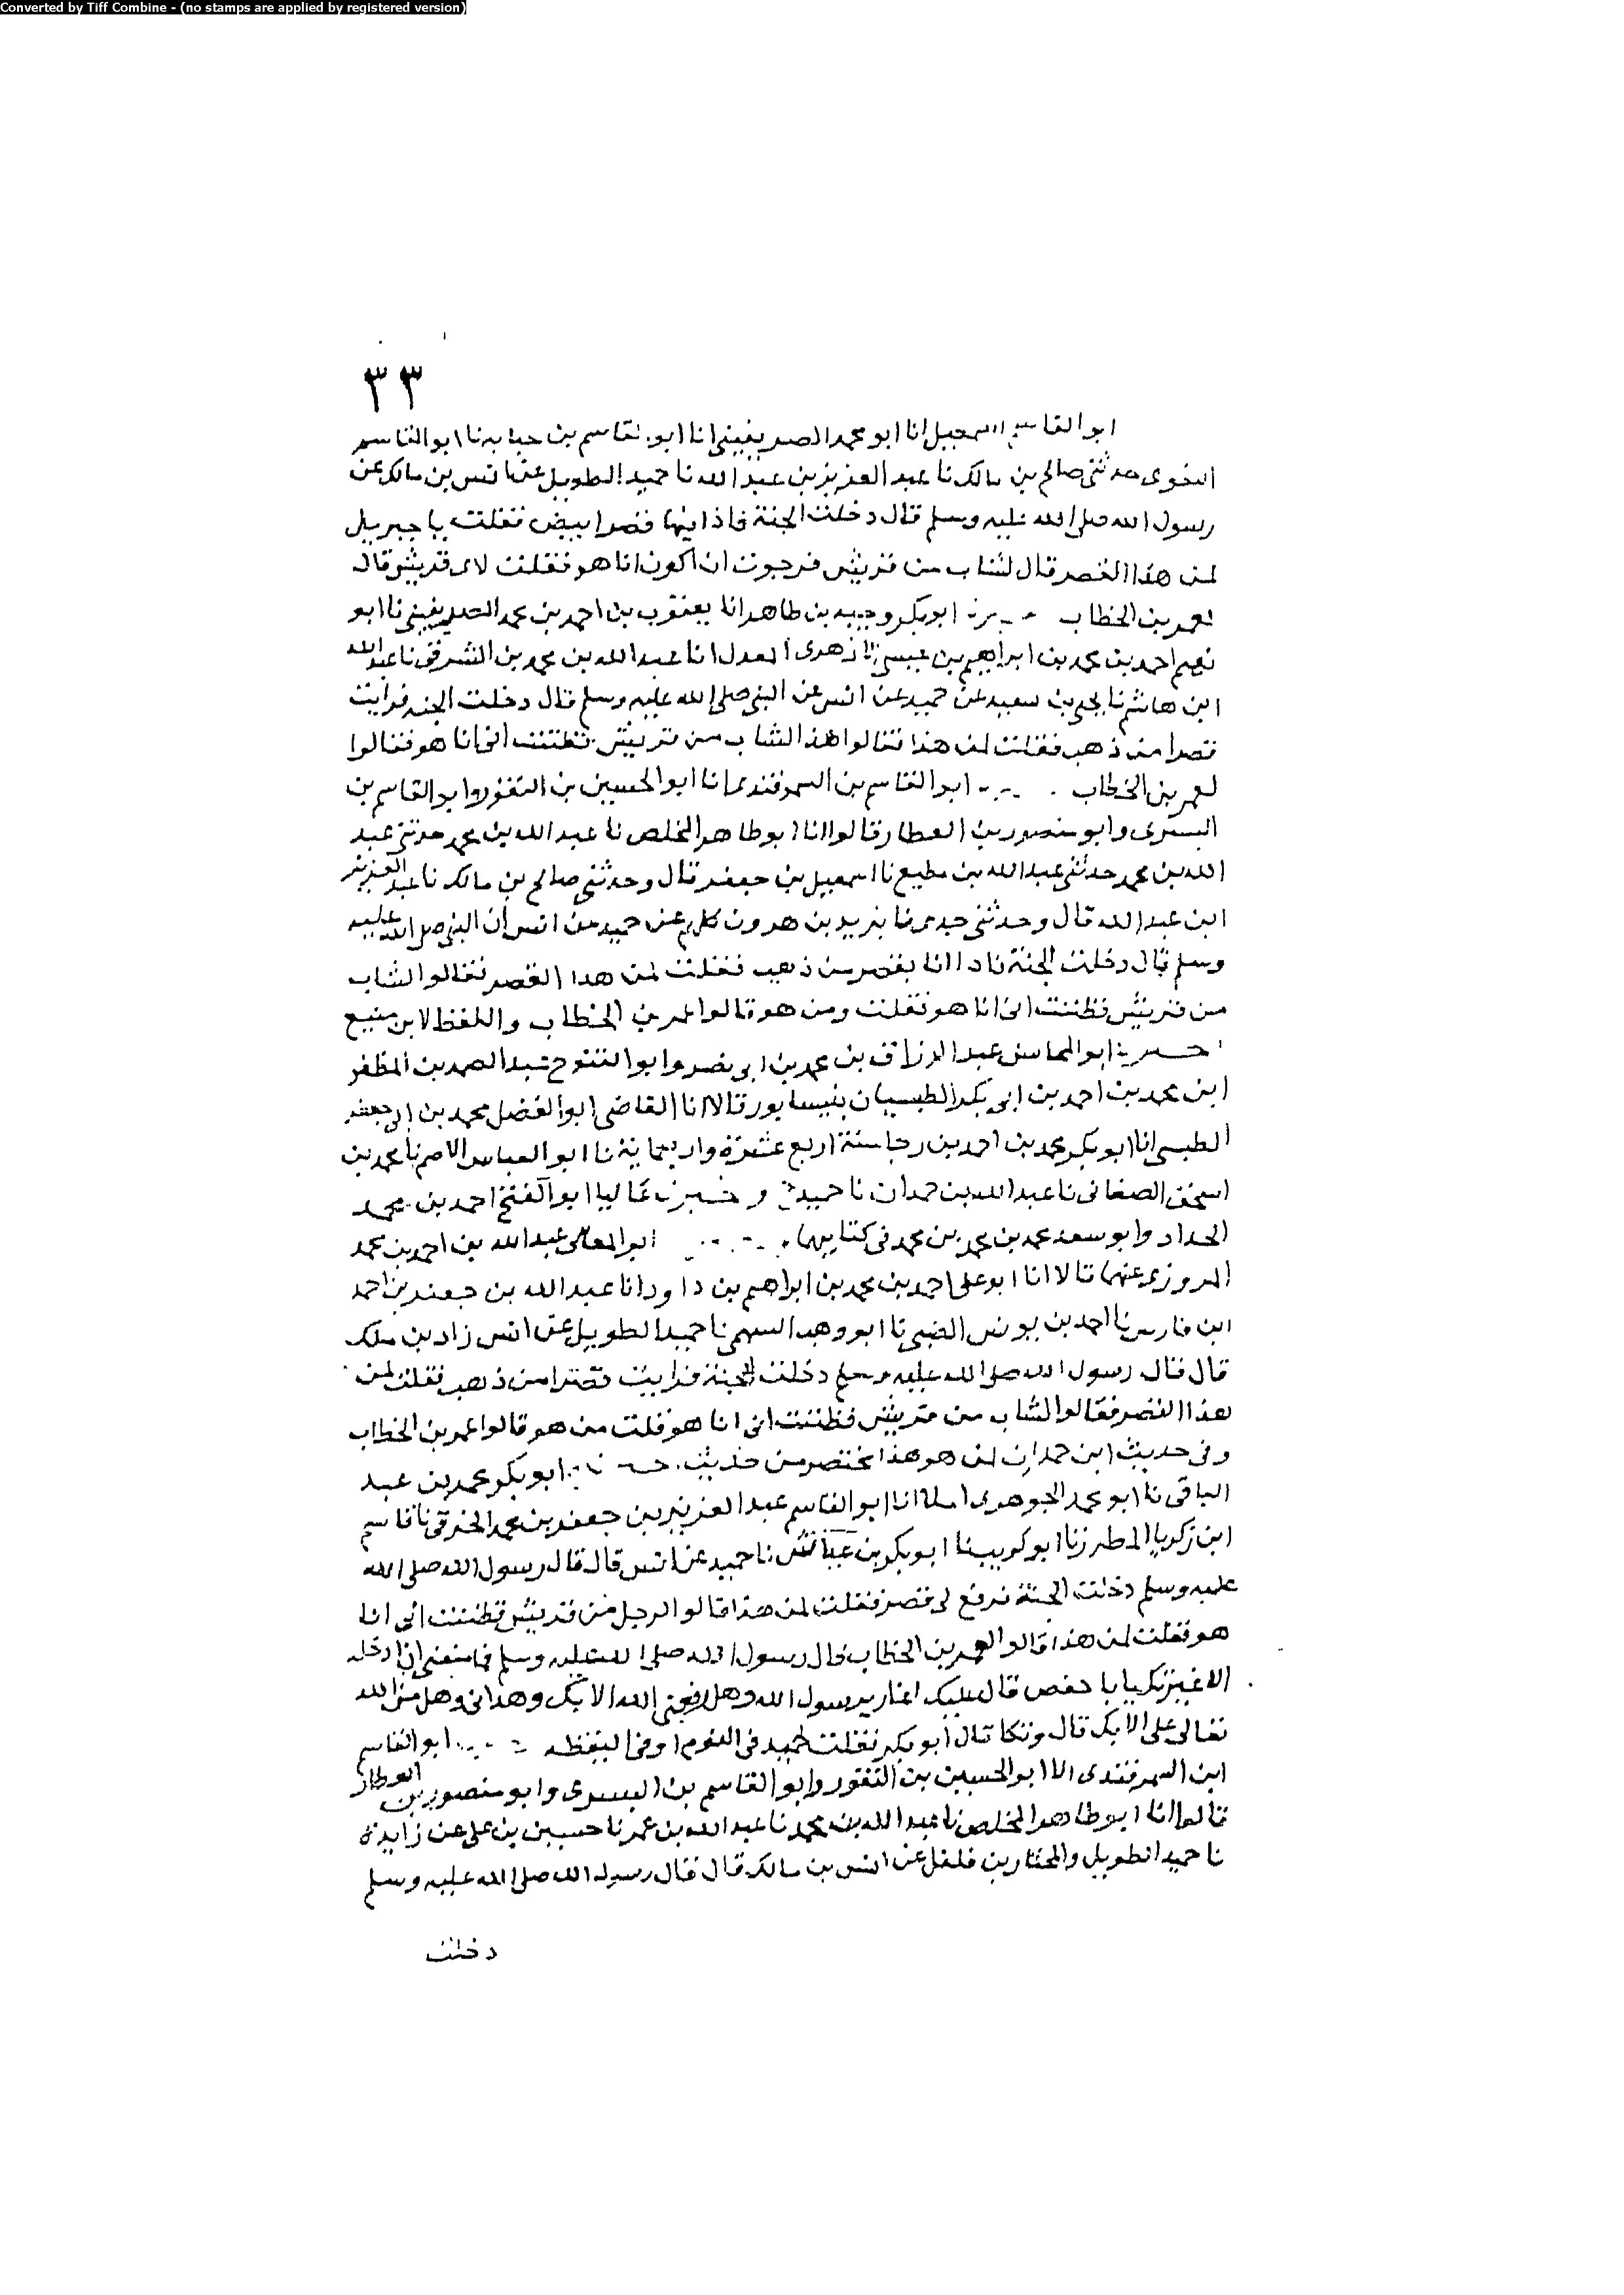 Converted by Tiff Combine - (no stamps are applied by registered version)
٣٣
ابو القاسم اسمعيل انا ابو محمد الصريفيني انا ابو القاسم بن حبابه نا ابو القاسم
البغوى حدثني صالح بن مالك نا عبد العزيز بن عبد الله نا حميد الطويل عن انس بن مالك عن
رسول الله صلى الله عليه وسلم قال دخلت الجنة فاذا فيها قصرا بيض فقلت يا جبريل
لمن هذا القصر قال لشاب من قريش فرجوت ان اكون انا هو فقلت لاى قريش قال
لعمر بن الخطاب ابو بكر وجيه بن طاهر انا يعقوب بن احمد بن محمد الصيرفيني نا ابو
نعيم احمد بن محمد بن ابراهيم بن عيسى الازهرى العدل انا عبد الله بن محمد بن الشرقى نا عبد الله
ابن هاشم نا يحيى بن سعيد عن حميد عن انس عن النبي صلى الله عليه وسلم قال دخلت الجنه فرايت
قصرا من ذهب فقلت لمن هذا فقالوا هذا لشاب من قريش فظننت انى انا هو فقالوا
لعمر بن الخطاب ابو القاسم بن السمرقندى انا ابو الحسين بن النقور وابو القاسم بن
البسرى وابو منصور بن العطار قالوا انا ابو طاهر المخلص نا عبد الله بن محمد حدثني عبد
الله بن محمد حدثني عبد الله بن مطيع نا اسمعيل بن جعفر قال وحدثني صالح بن مالك نا عبد العزيز
ابن عبد الله قال وحدثني جدى نا يزيد بن هرون كلهم عن حميد عن انس ان النبي صلى الله عليه
وسلم قال دخلت الجنة فادا انا بقصر من ذهب فقلت لمن هدا القصر فقالوا لشاب
من قريش فظننت انى انا هو فقلت ومن هو قالوا عمر بن الخطاب واللفظ لابن منيع
ابو المحاسن عبد الرزاق بن محمد بن ابى نصر وابو الفتوح عبد الصمد بن المظفر
ابن محمد بن احمد بن ابى بكر الطبسيان بنيسابور قالا انا القاضى ابو الفضل محمد بن ابى جعفر
الطبسى انا ابو بكر محمد بن احمد بن رجا سنة اربع عشرة واربعماية نا ابو العباس الاصم نا محمد بن
اسحق الصغانى نا عبد الله بن حمدان نا حميد عاليا ابو الفتح احمد بن محمد
الحداد وابو سعد محمد بن محمد بن محمد فى كتابيهما ابو المعالى عبد الله بن احمد بن محمد
المروزى عنهما قالا انا ابو على احمد بن محمد بن ابراهيم بن داود انا عبد الله بن جعفر بن احمد
ابن فارس نا احمد بن يونس الضبي نا ابو وهب السهمى نا حميد الطويل عن انس زاد بن ملك
قال قال رسول الله صلى الله عليه وسلم دخلت الجنة فرايت قصرا من ذهب فقلت لمن
هذا القصر فقالوا لشاب من قريش فظننت انى انا هو قلت من هو قالوا عمر بن الخطاب
وفى حديث ابن حمدان لمن هو هذا مختصر من حديث ابو بكر محمد بن عبد
الباقى نا ابو محمد الجوهرى املا انا ابو القاسم عبد العزيز بن جعفر بن محمد الخرقى نا قاسم
ابن زكريا المطرز نا ابو كريب نا ابو بكر بن عياش نا حميد عن انس قال قال رسول الله صلى الله
عليه وسلم دخلت الجنة فرفع لى قصر فقلت لمن هذا قالوا لرجل من قريش فظننت انى انا
هو فقلت لمن هذا قالوا لعمر بن الخطاب قال رسول الله صلى الله عليه وسلم فما منعنى ان ادخله
الا غيرتك يا ابا حفص قال عليك اغار يرسول الله وهل رفعنى الله الا بك وهدانى وهل من الله
تعالى على الا بك قال وبكا قال ابو بكر فقلت لحميد فى النوم او فى اليقظه ابو القاسم
ابن السمرقندى انا ابو الحسين بن النقور وابو القاسم بن البسرى وابو منصور بن العطار
قالوا انا ابو طاهر المخلص نا عبد الله بن محمد نا عبد الله بن عمر نا حسين بن على عن زايدة
نا حميد الطويل والمختار بن فلفل عن انس بن مالك قال قال رسول الله صلى الله عليه وسلم
دخلت